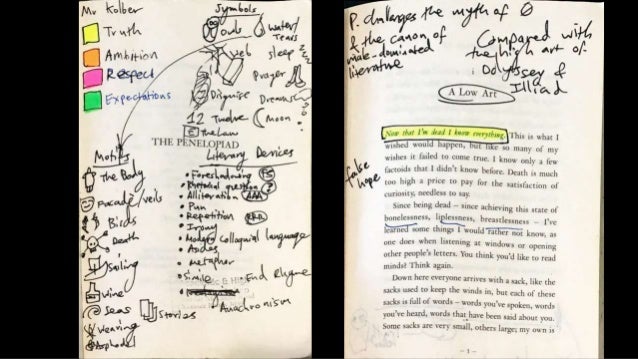 Mr Kolber
Truth
Ambition
Respect
Expectations
Symbols
Owls
Water/
Tears
Web
sleep
Prayer
Disguise
Dreams
12 Twelve
Moon
The Law
THE PENELOPIAD
Motifs
The Body
Facade/veils
Birds
Death
Sailing
Vine
Seas
Weaving
Asphodel
Stories
Literary Devices
• Foreshadowing FS
• Rhetorical question ?
• Alliteration AAA
• Pun
• Repetition RRR
• Irony
• Modern colloquial language
• Asides
• metaphor
• simile
End Rhyme
Anachronism
P. challenges the myth of O
& the canon of
male-dominated
literature
Compared with
the high art of
Odyssey &
Illiad
A Low Art
fake
hope
Now that I'm dead I know everything. This is what I
wished would happen, but like so many of my
wishes it failed to come true. I know only a few
factoids that I didn't know before. Death is much
too high a price to pay for the satisfaction of
curiosity, needless to say.
Since being dead – since achieving this state of
bonelessness, liplessness, breastlessness – I've
learned some things I would rather not know, as
one does when listening at windows or opening
other people's letters. You think you'd like to read
minds? Think again.
Down here everyone arrives with a sack, like the
sacks used to keep the winds in, but each of these
sacks is full of words – words you've spoken, words
you've heard, words that have been said about you.
Some sacks are very small, others large; my own is
– 1 –